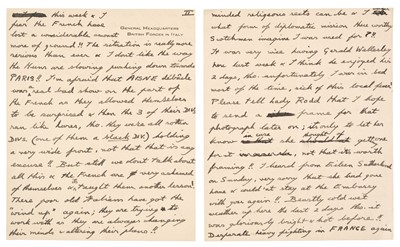 II
GENERAL HEADQUARTERS
BRITISH FORCES IN ITALY
this week & I
fear the French have
lost a considerable amount
more of ground!! The situation is really more
serious than ever & I don't like the way
the Huns are slowing pushing down towards
PARIS!! I'm afraid that AISNE débâcle
was a real bad show on the part of
the French as they allowed themselves
to be surprised & then the 3 of their DIVS
ran like hares; tho, they were all other
DIVS (one of them a black DIV) holding
a very wide front, not that that is any
excuse!! But still we don't talk about
all this & the French are very ashamed
of themselves & it's taught them another lesson!
These poor old Italians have got the
"wind up" again; they are trying to
work with as they are always changing
their minds & altering their plans!!
minded religious rests can be & I
what form of diplomatic mission this worthy
Scotchman imagines I was used for!!
It was very nice having Gerald Wellesley
here last week & I think he enjoyed his
2 days, tho. unfortunately I was in bed
most of the time, sick of this local fever
Please tell Lady Rodd that I hope
to send a frame for that
photograph later on; it's nice to let her
know & she to get me
for it not that it's worth
framing!! I heard from Eileen Sutherland
on Sunday, very sorry that she had gone
home & could not stay at the Embassy
with you again!! Beastly cold wet
weather up here the last 2 days tho. it
was gloriously bright & hot before!!
Desperate heavy fighting in FRANCE again